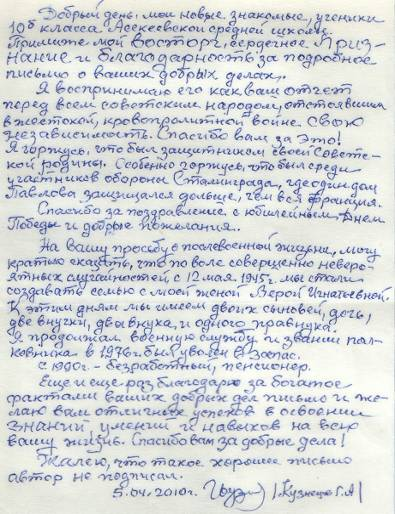 Добрый день, мои новые знакомые, ученики
10б класса Асекеевской средней школы.
Примите мой восторг, сердечное приз-
нание и благодарность за подробное
письмо о ваших добрых делах.
Я воспринимаю его как ваш отчет
перед всем советским народом, отстоявшим
в жестокой, кровопролитной войне свою
независимость. Спасибо вам за это!
Я горжусь, что был защитником своей Советс-
кой родины. Особенно горжусь, что был среди
участников обороны Сталинграда, где один дом
Павлова защищался дольше, чем вся Франция.
Спасибо за поздравление с юбилейным Днем
Победы и добрые пожелания.
На вашу просьбу о послевоенной жизни, могу
кратко сказать, что по воле совершенно неверо-
ятных случайностей с 12 мая 1945г. мы стали
создавать семью с моей женой Верой Игнатьевной.
К этим дням мы имеем двоих сыновей, дочь,
две внучки, два внука, и одного правнука.
Я продолжал военную службу и в звании пол-
ковника в 1976г. был уволен в запас.
С 1990г. - безработный, пенсионер.
Еще и еще раз благодарю за богатое
фактами ваших добрых дел письмо и же-
лаю вам отличных успехов в освоении
знаний, умений и навыков на всю
вашу жизнь. Спасибо вам за добрые дела!
Жалею, что такое хорошее письмо
автор не подписал.
5.04.2010г. /Кузнецов Г.А/